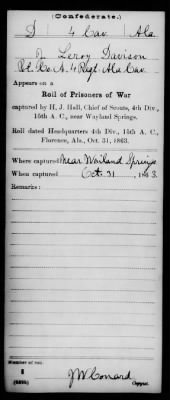 (Confederate.)
D 4 Cav Ala
R. Leroy Davison
Co. A. 4 Regt. Ala Cav.
Appears on a
Roll of Prisoners of War
captured by H. J. Hall, Chief of Scouts, 4th Div.,
15th A. C., near Wayland Springs.
Roll dated Headquarters 4th Div., 15th A. C.,
Florence, Ala., Oct. 31, 1863.
Where captured Near Wailand Springs
When captured Oct. 31, 1863.
Remarks:
Number of roll:
J W Conard
Copyist.